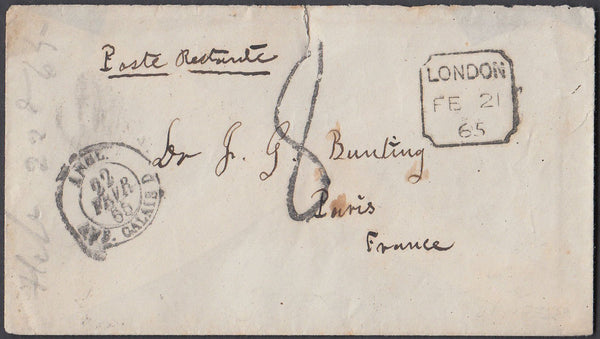 Poste Restante
LONDON
FE 21
65
Dr J. G. Bunting
8
Paris
France
ANGL.
22
FEVR
65
AMB. CALAIS D